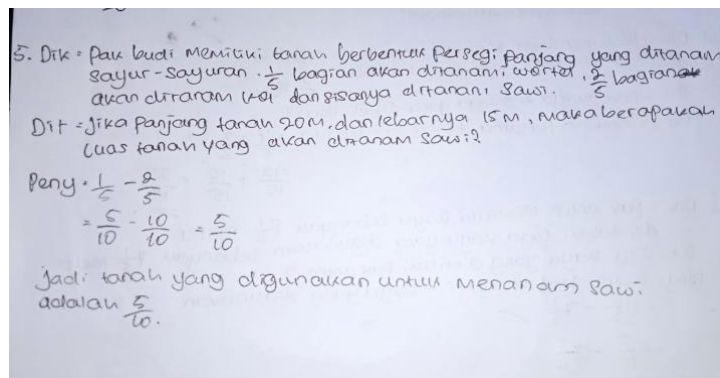 5. Dik = Pak budi memiliki tanah berbentuk persegi panjang yang ditanam
sayur-sayuran. 1/5 bagian akan ditanami wortel, 2/5 bagian
akan ditanam kol dan sisanya ditanami sawi.
Dit = Jika panjang tanah 20 M, dan lebarnya 15 M, maka berapakah
luas tanah yang akan ditanam sawi?
Peny. 1/5 - 2/5
= 5/10 - 10/10 = 5/10
Jadi tanah yang digunakan untuk menanam sawi
adalah 5/10.